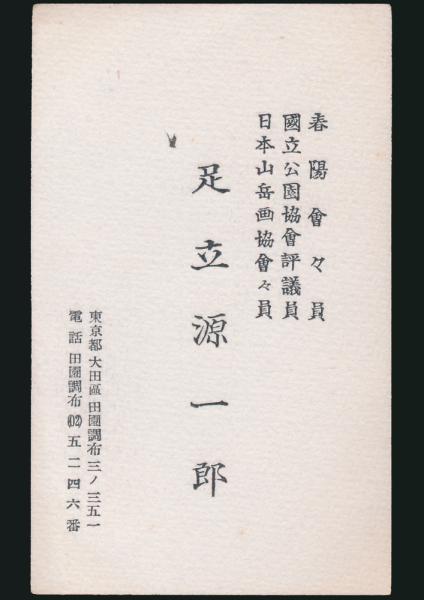 春陽會々員
國立公園協會評議員
日本山岳画協會々員
足立源一郎
東京都大田區田園調布三ノ三五一
電話田園調布(02)五二四六番